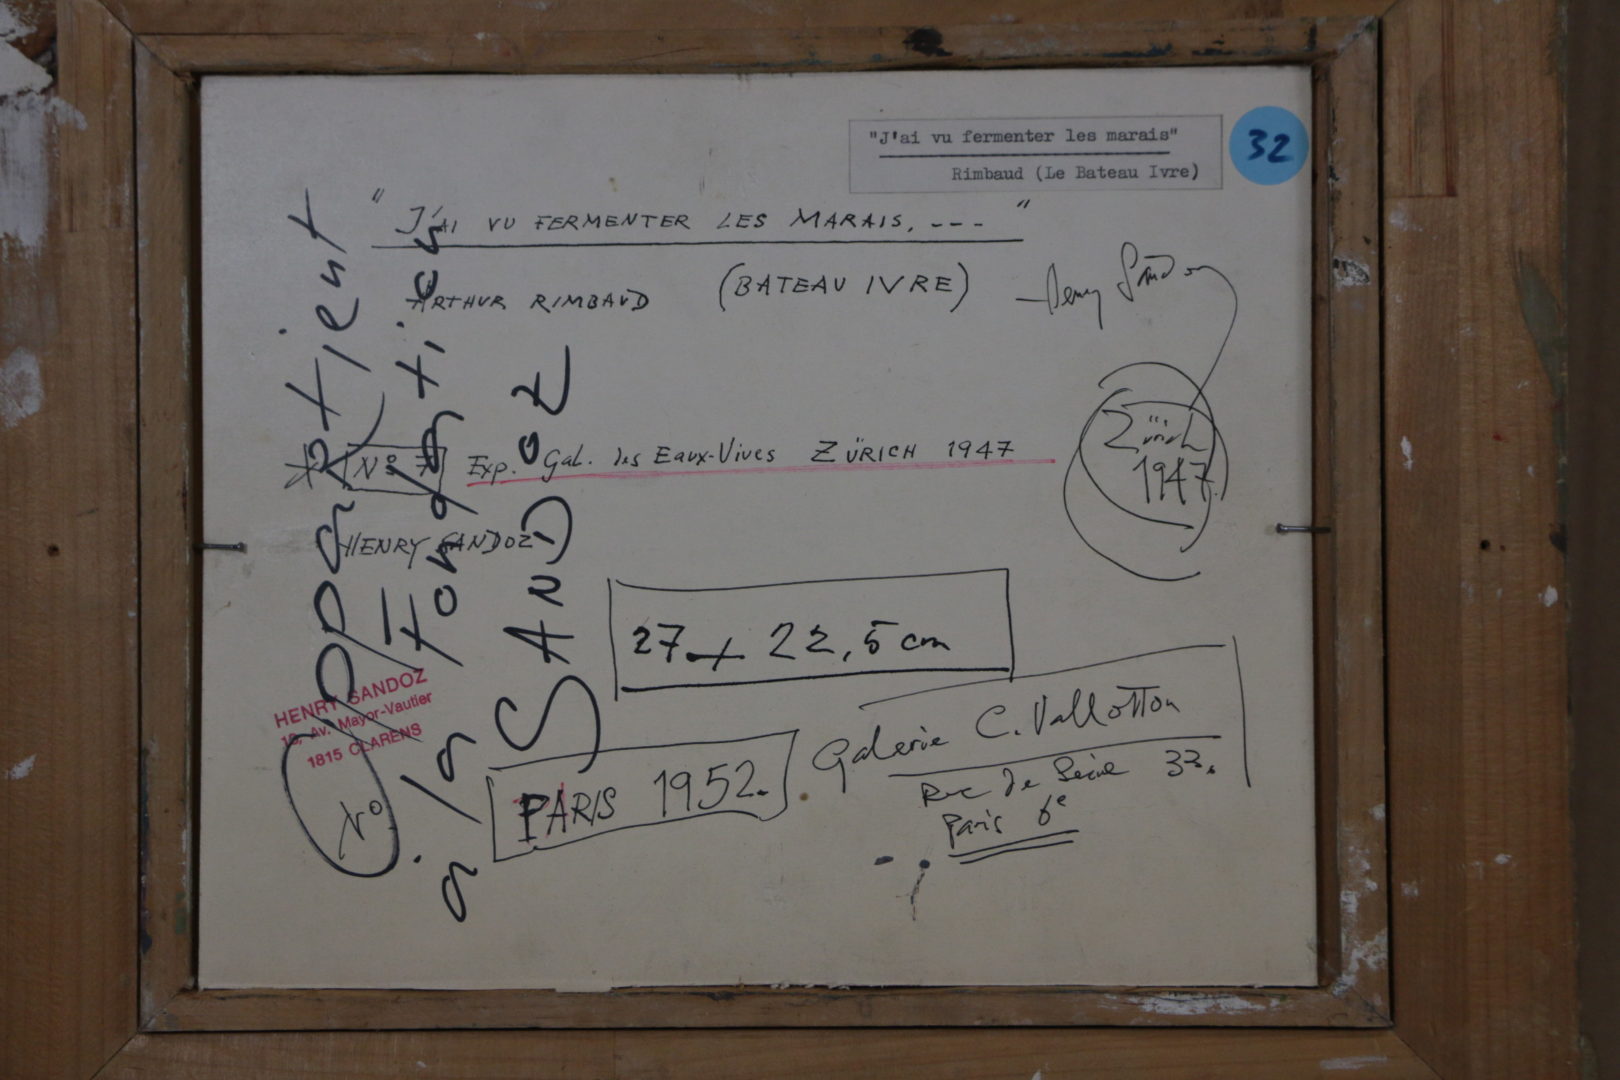 "J'ai vu fermenter les marais"
Rimbaud (Le Bateau Ivre)
32
" J'AI VU FERMENTER LES MARAIS, --- "
ARTHUR RIMBAUD (BATEAU IVRE) Henry Sandoz
Zürich
1947
* N° 7 Exp. Gal. des Eaux-Vives ZÜRICH 1947
HENRY SANDOZ
27 x 22,5 cm
appartient
à la Fondation
SANDOZ
HENRY SANDOZ
Av. Mayor-Vautier
1815 CLARENS
N°
PARIS 1952.
Galerie C. Vallotton
Rue de Seine 33.
Paris 6e